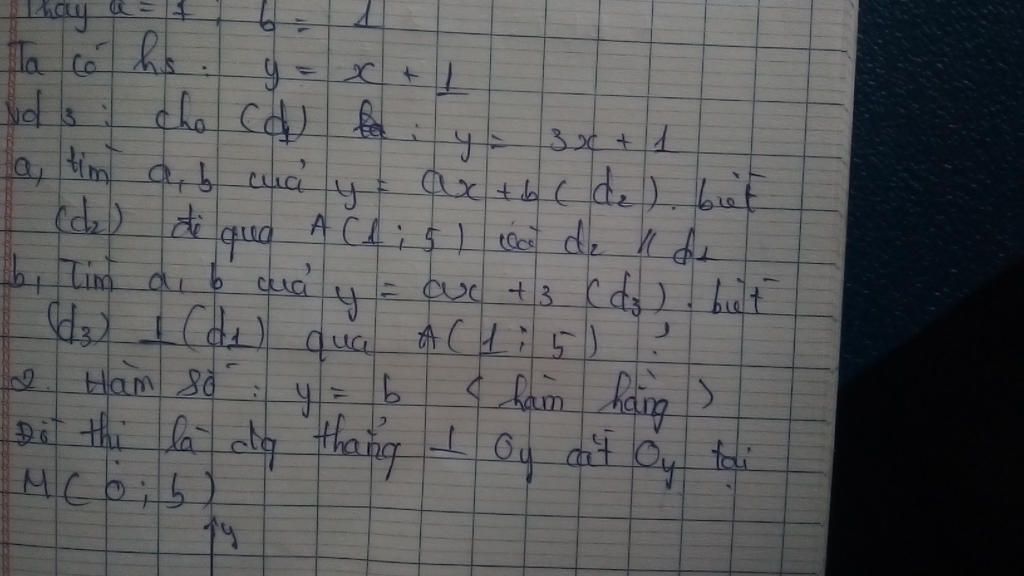 Thay a = 1 ; b = 1
Ta có hs : y = x + 1
Vd 3 : cho (d1) : y = 3x + 1
a, tìm a, b của y = ax + b ( d2 ) . biết
(d2) đi qua A ( 1 ; 5 ) và d2 // d1
b, Tìm a, b của y = ax + 3 (d3) . biết
(d3) ⊥ (d1) qua A ( 1 ; 5 ) ?
2. Hàm số : y = b < hàm hằng >
Đồ thị là đg thẳng ⊥ Oy cắt Oy tại
M ( 0 ; b )
y